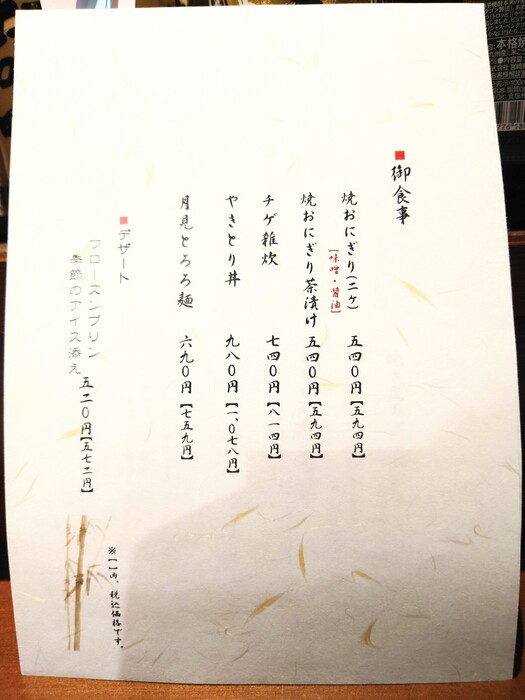 ■御食事
焼おにぎり(二ケ) 五四〇円【五九四円】
【味噌・醤油】
焼おにぎり茶漬け 五四〇円【五九四円】
チゲ雑炊 七四〇円【八一四円】
やきとり丼 九八〇円【一、〇七八円】
月見とろろ麺 六九〇円【七五九円】
■デザート
フローズンプリン
季節のアイス添え 五二〇円【五七二円】
※【】内、税込価格です。
本格焼